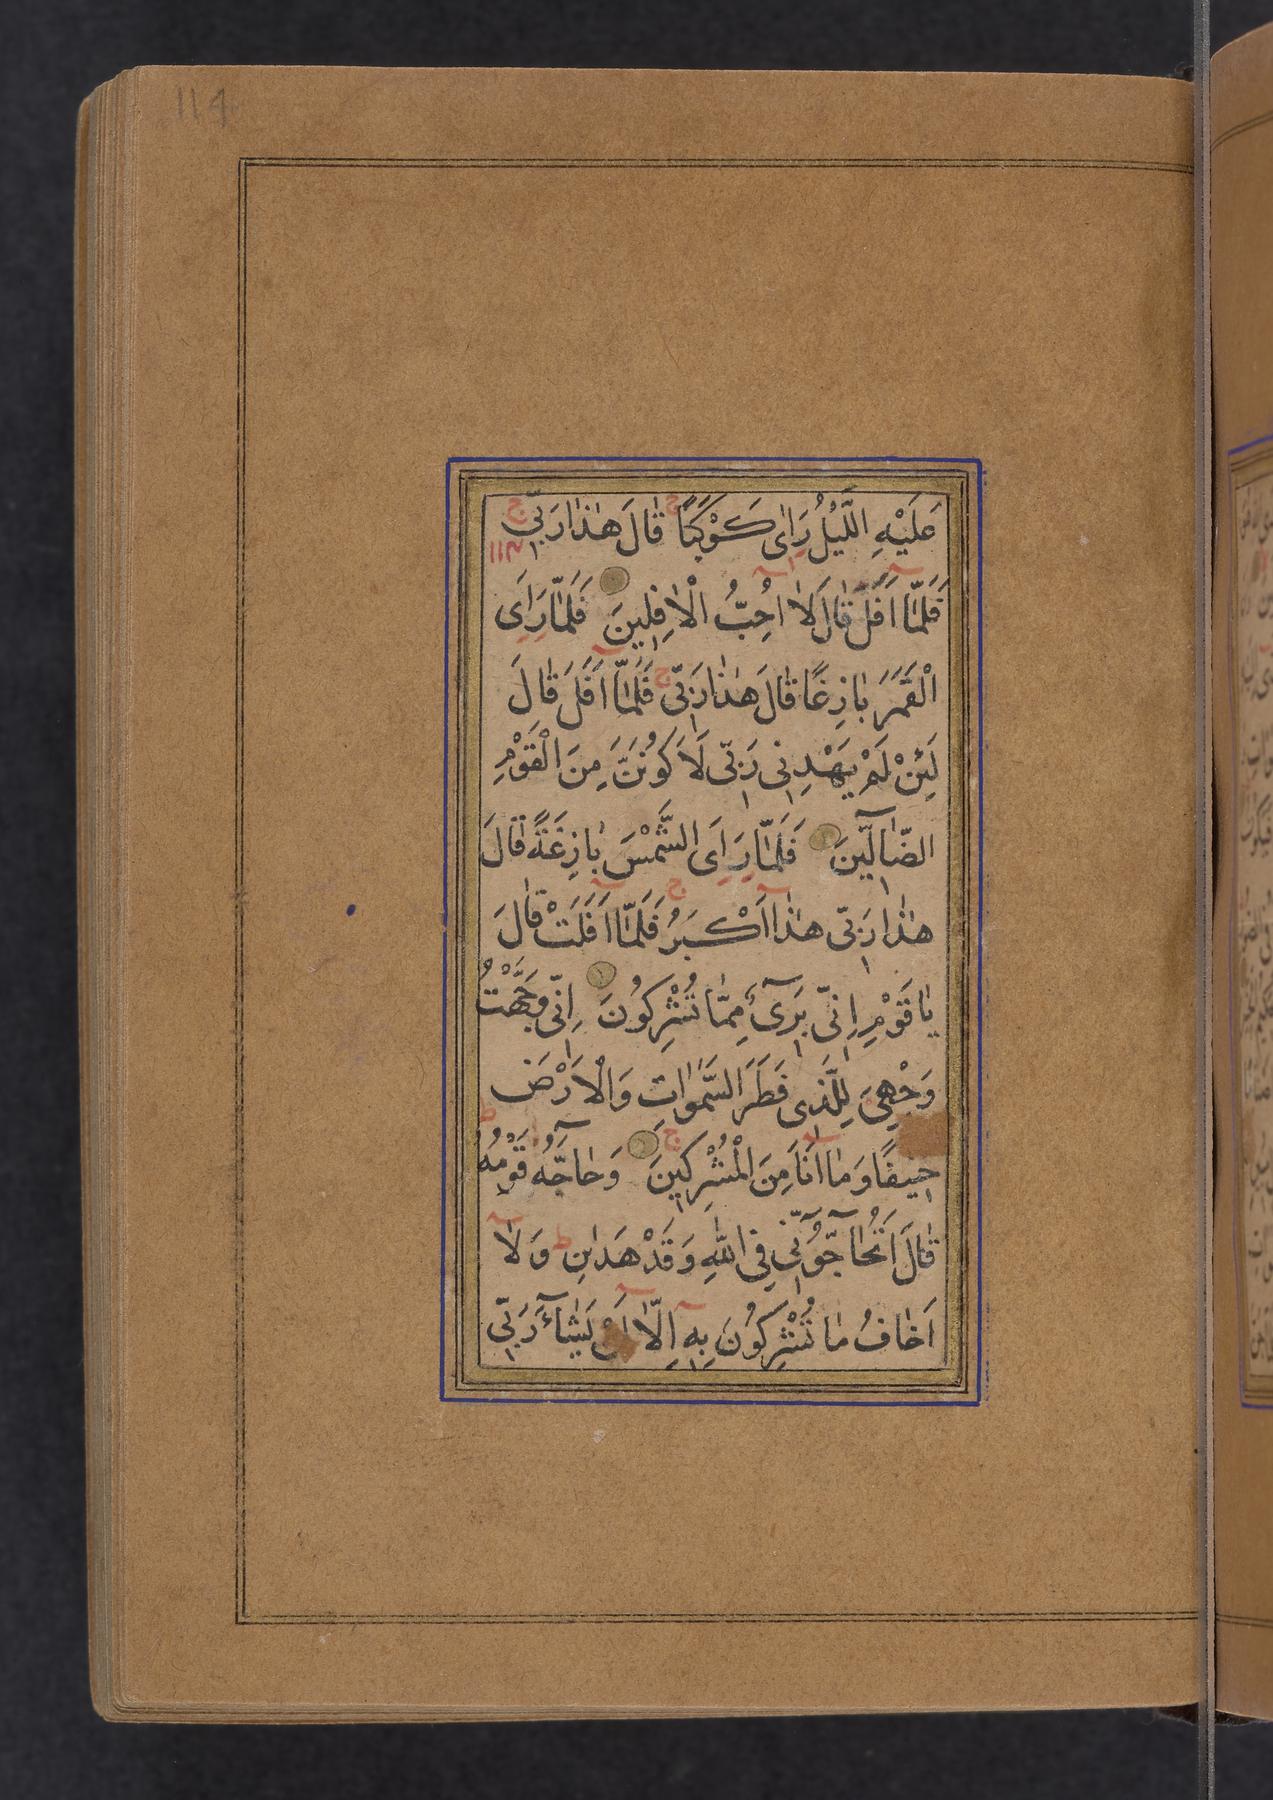 114
عَلَيْهِ اللَّيْلُ رَاٰى كَوْكَبًا ج قٰالَ هٰذٰا رَبّٖى ج
فَلَمّٰا اَفَلَ قٰالَ لٰا اُحِبُّ الْاٰفِلٖينَ فَلَمّٰا رَاَى
الْقَمَرَ بٰازِغًا قٰالَ هٰذٰا رَبّٖى ج فَلَمّٰا اَفَلَ قٰالَ
لَئِنْ لَمْ يَهْدِنٖى رَبّٖى لَاَكُونَنَّ مِنَ الْقَوْمِ
الضّٰالّٖينَ فَلَمّٰا رَاَى الشَّمْسَ بٰازِغَةً قٰالَ
هٰذٰا رَبّٖى هٰذٰا اَكْبَرُ ج فَلَمّٰا اَفَلَتْ قٰالَ
يٰا قَوْمِ اِنّٖى بَرٖىٓءٌ مِمّٰا تُشْرِكُونَ اِنّٖى وَجَّهْتُ
وَجْهِىَ لِلَّذٖى فَطَرَ السَّمٰوٰاتِ وَالْاَرْضَ
حَنٖيفًا وَمٰا اَنَا مِنَ الْمُشْرِكٖينَ ج وَحٰاجَّهُ قَوْمُهُ ط
قٰالَ اَتُحٰاجُّٓوٓنّٖى فِى اللّٰهِ وَقَدْ هَدٰىنِ ط وَلٰا
اَخٰافُ مٰا تُشْرِكُونَ بِهٖ اِلّٰا اَنْ يَشٰٓاءَ رَبّٖى